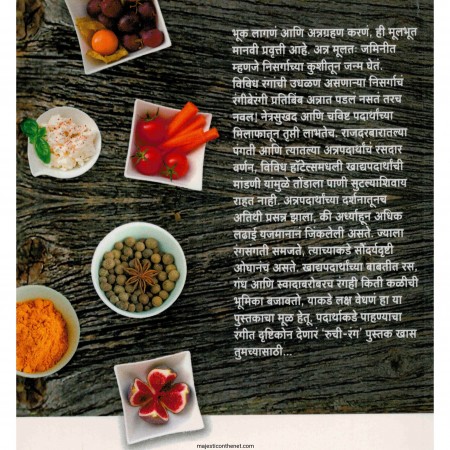 भूक लागणं आणि अन्नग्रहण करणं, ही मूलभूत
मानवी प्रवृत्ती आहे. अन्न मूलतः जमिनीत
म्हणजे निसर्गाच्या कुशीतून जन्म घेतं.
विविध रंगांची उधळण असणाऱ्या निसर्गाचं
रंगीबेरंगी प्रतिबिंब अन्नात पडलं नसतं तरच
नवल! नेत्रसुखद आणि चविष्ट पदार्थांच्या
मिलाफातून तृप्ती लाभतेच. राजदरबारातल्या
पंगती आणि त्यातल्या अन्नपदार्थांचं रसदार
वर्णन, विविध हॉटेल्समधली खाद्यपदार्थांची
मांडणी यामुळे तोंडाला पाणी सुटल्याशिवाय
राहत नाही. अन्नपदार्थाच्या दर्शनातूनच
अतिथी प्रसन्न झाला, की अर्ध्याहून अधिक
लढाई यजमानानं जिंकलेली असते. ज्याला
रंगसंगती समजते, त्याच्याकडे सौंदर्यदृष्टी
ओघानंच असते. खाद्यपदार्थांच्या बाबतीत रस,
गंध आणि स्वादाबरोबरच रंगही किती कळीची
भूमिका बजावतो, याकडे लक्ष वेधणं हा या
पुस्तकाचा मूळ हेतू. पदार्थाकडे पाहण्याचा
रंगीत दृष्टिकोन देणारं 'रुची-रंग' पुस्तक खास
तुमच्यासाठी...
majesticonthenet.com